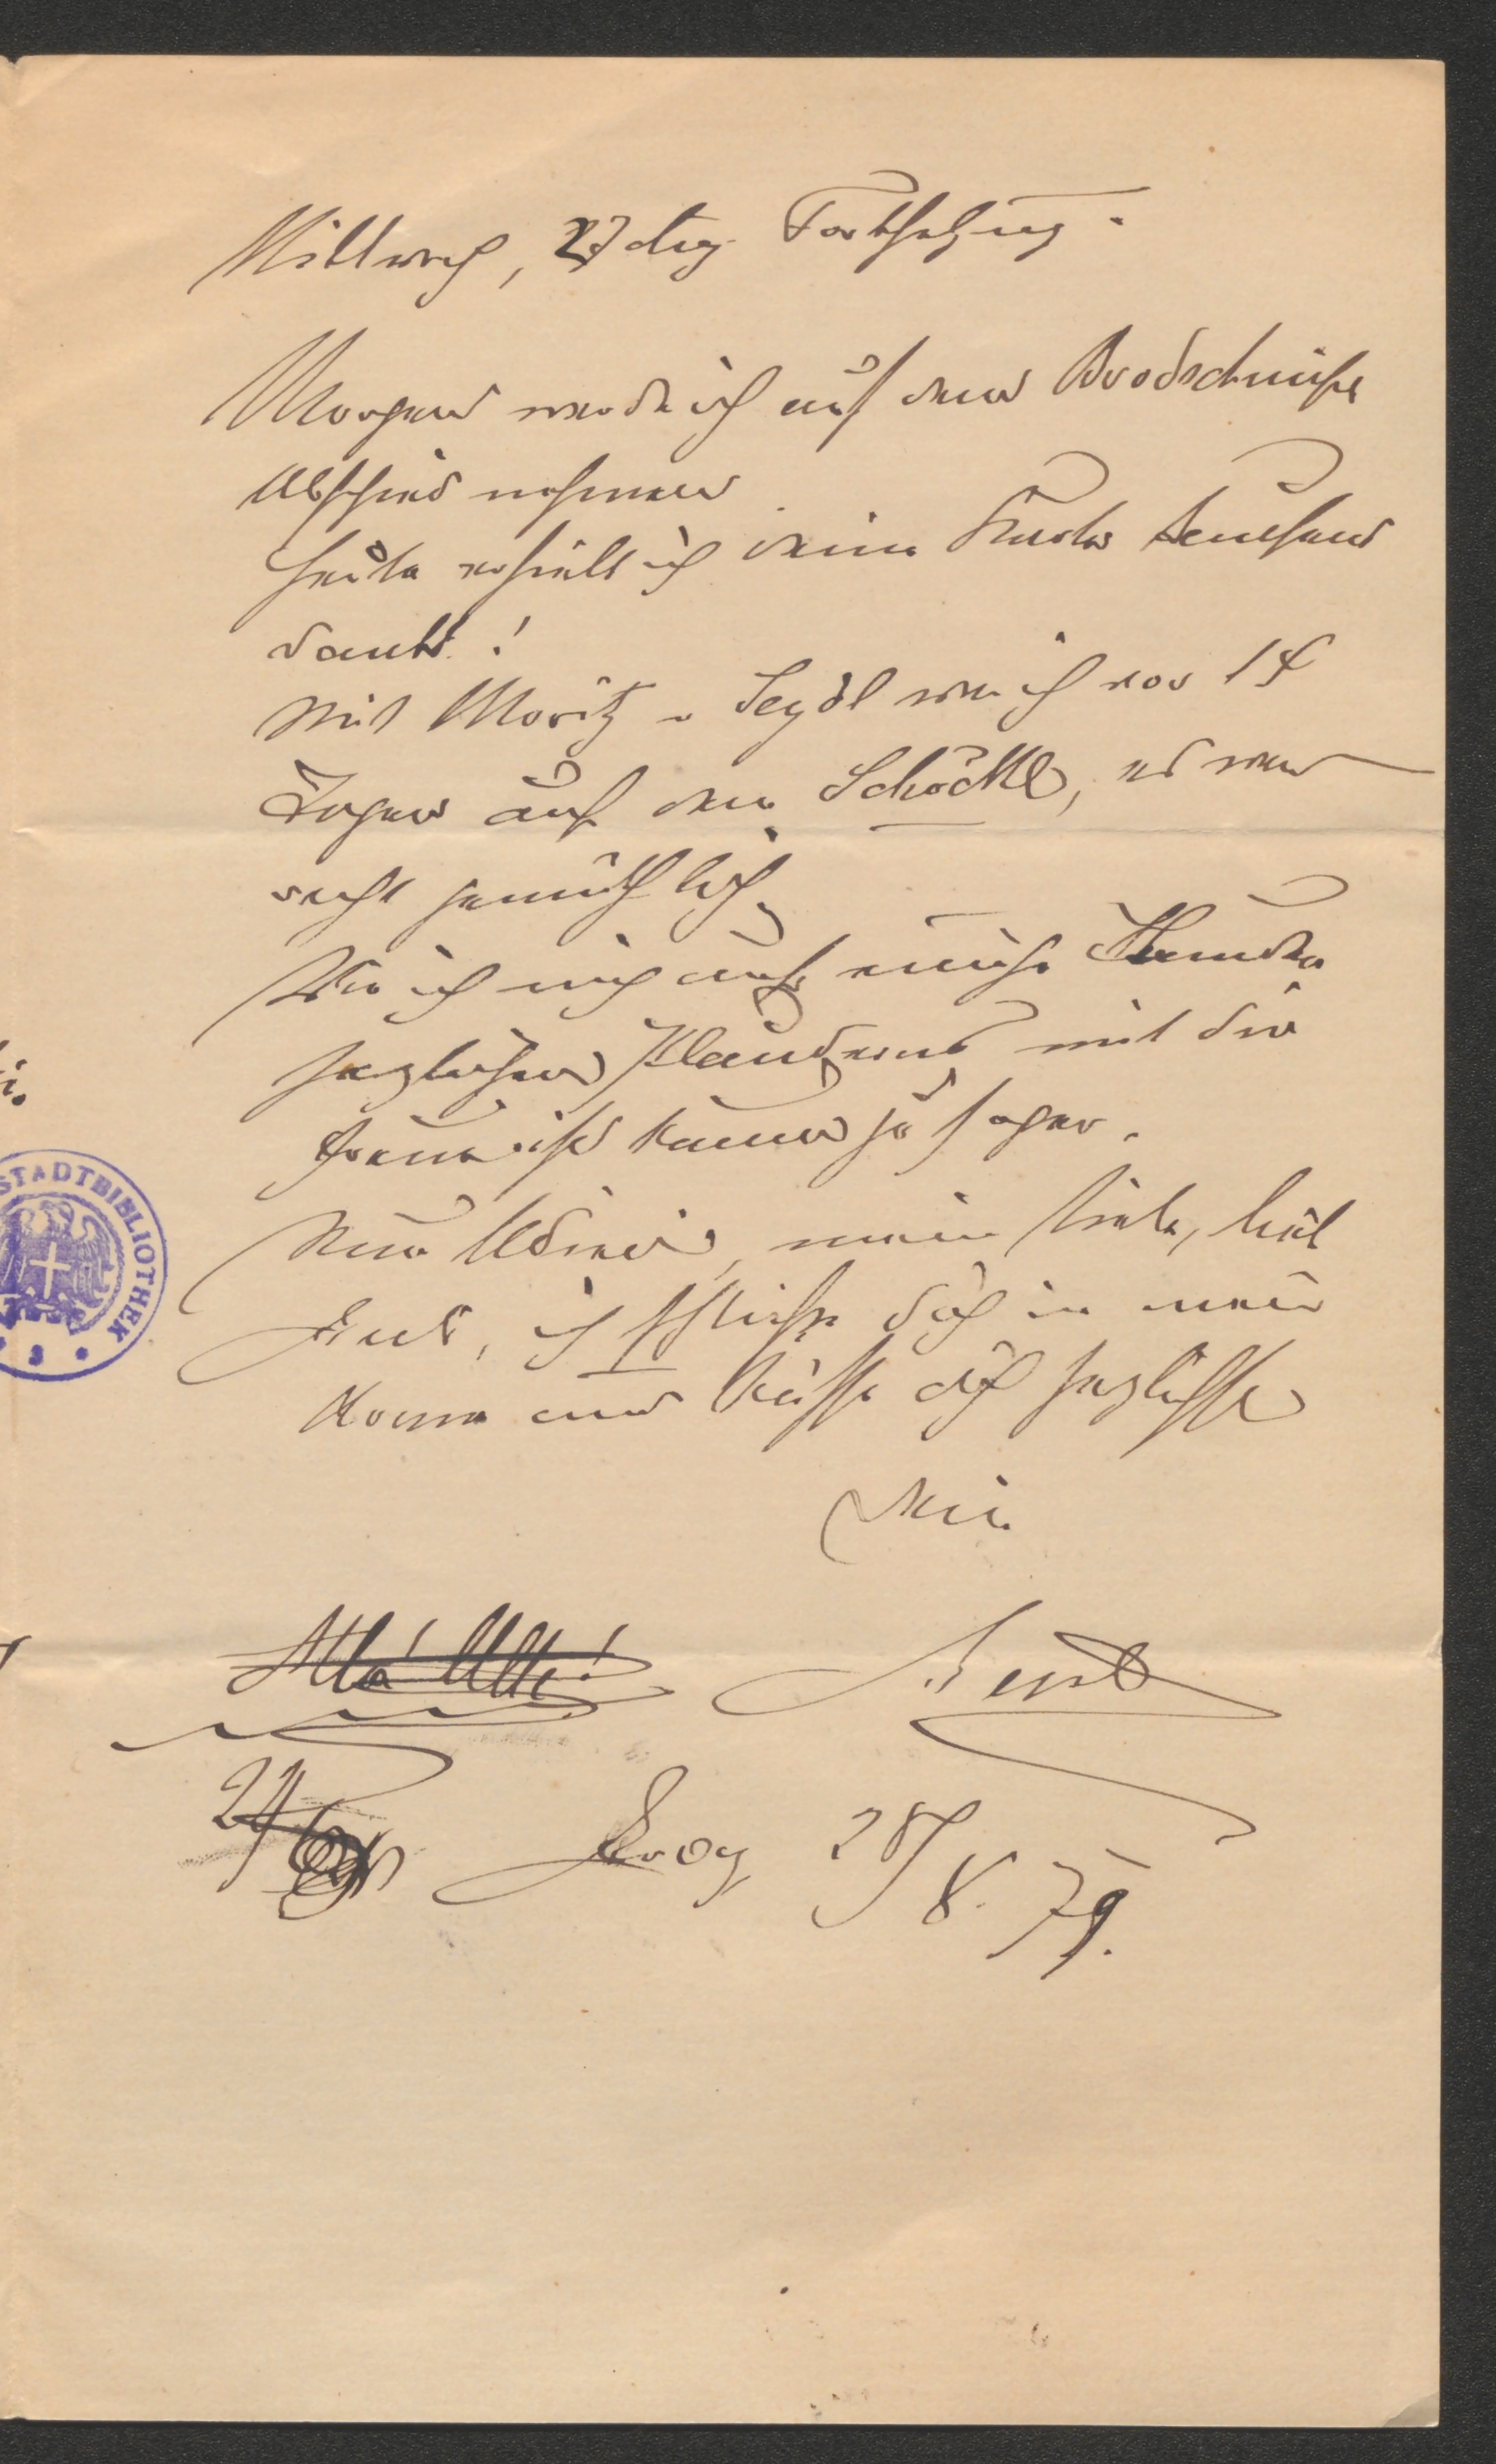 Mittwoch, 27 Aug. Fortsetzung.
Morgen werde ich auf dem
Abschied nehmen
heute erhielt ich deine Karte tausend
dank!
Mit Moritz u Seydl war ich vor 14
Tagen auf dem Schöckl, es war
recht gemüthlich.
Wie ich mich auf einige Stunden
herzlichen Plauderns mit dir
freue ist kaum zu sagen.
Nun Adieu, mein liebe,
ich schließe dich in meine
Arme und küsse dich herzlichst
Dein
Graz 28/8. 79.
STADTBIBLIOTHEK